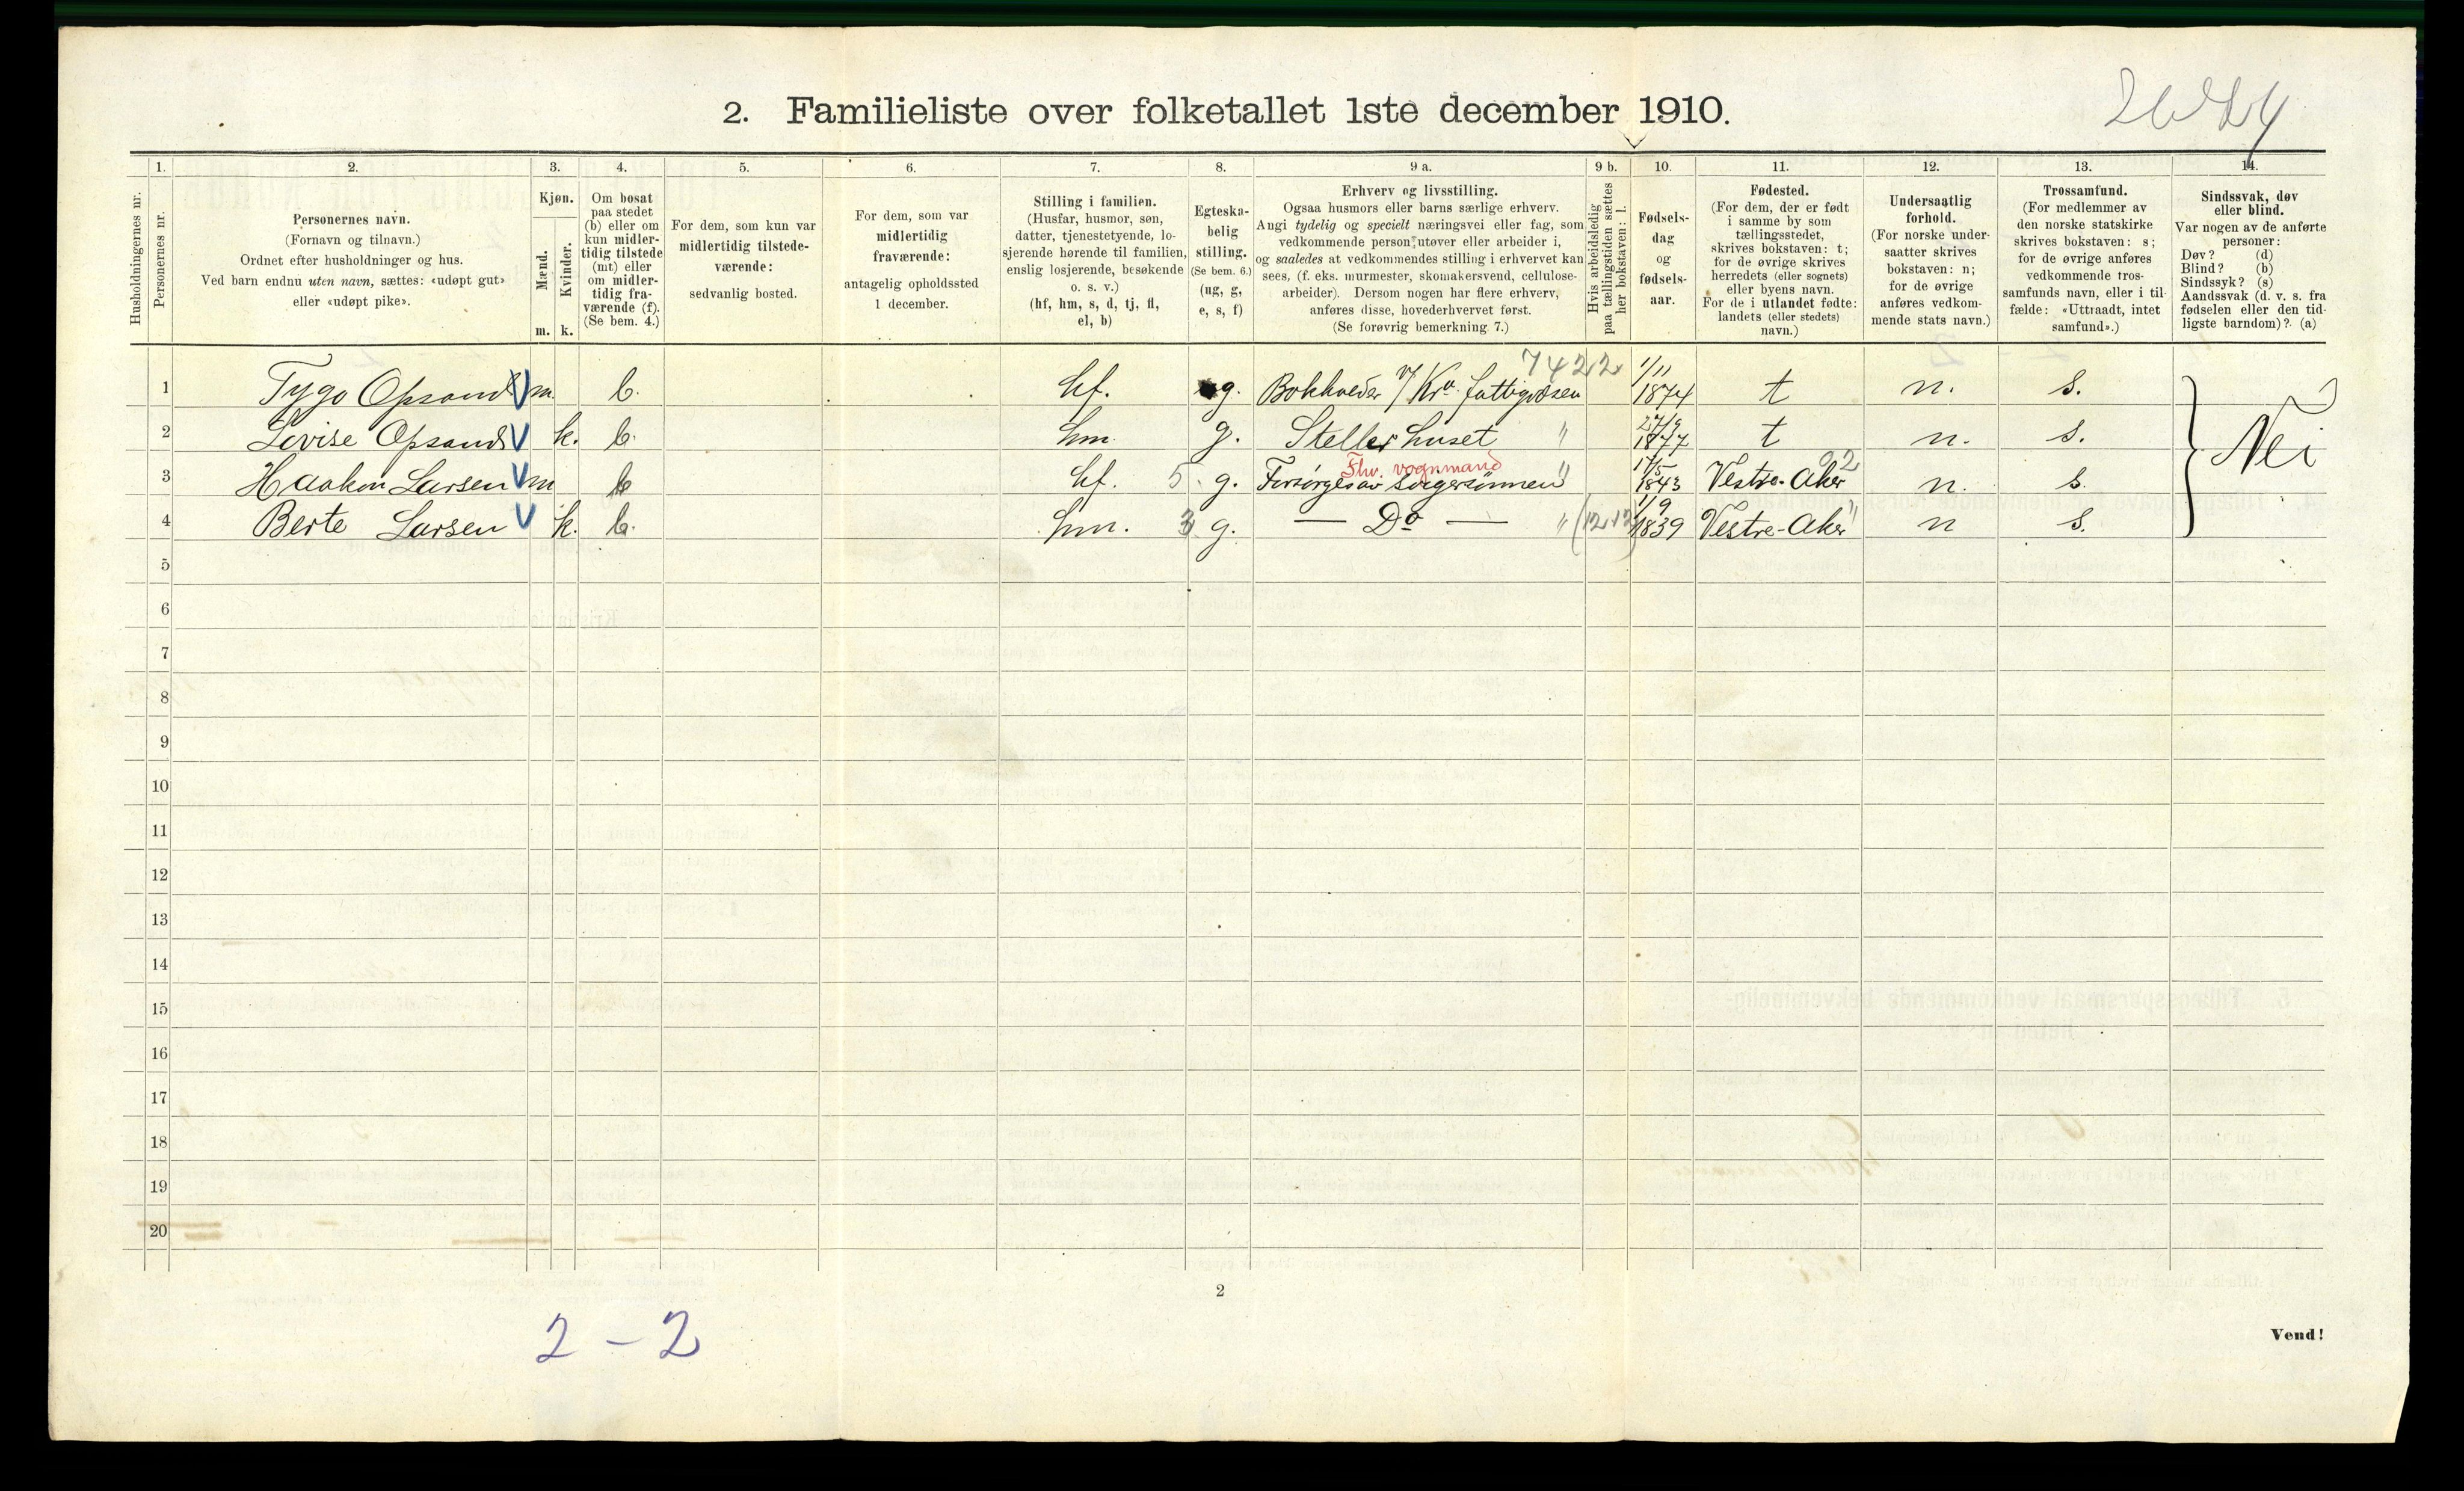 2. Familieliste over folketallet 1ste december 1910.
1. 2. 3. 4. 5. 6. 7. 8. 9 a. 9 b. 10. 11. 12. 13. 14.
Husholdningernes nr.
Personernes nr.
Personernes navn.
(Fornavn og tilnavn.)
Ordnet efter husholdninger og hus.
Ved barn endnu uten navn, sættes: «udøpt gut»
eller «udøpt pike».
Kjøn.
Mænd.
m.
Kvinder.
k.
Om bosat
paa stedet
(b) eller om
kun midler-
tidig tilstede
(mt) eller
om midler-
tidig fra-
værende (f).
(Se bem. 4.)
For dem, som kun var
midlertidig tilstede-
værende:
sedvanlig bosted.
For dem, som var
midlertidig
fraværende:
antagelig opholdssted
1 december.
Stilling i familien.
(Husfar, husmor, søn,
datter, tjenestetyende, lo-
sjerende hørende til familien,
enslig losjerende, besøkende
o. s. v.)
(hf, hm, s, d, tj, fl,
el, b)
Egteska-
belig
stilling.
(Se bem. 6.)
(ug, g,
e, s, f)
Erhverv og livsstilling.
Ogsaa husmors eller barns særlige erhverv.
Angi tydelig og specielt næringsvei eller fag, som
vedkommende person utøver eller arbeider i,
og saaledes at vedkommendes stilling i erhvervet kan
sees, (f. eks. murmester, skomakersvend, cellulose-
arbeider). Dersom nogen har flere erhverv,
anføres disse, hovederhvervet først.
(Se forøvrig bemerkning 7.)
Hvis arbeidsledig
paa tællingstiden sættes
her bokstaven: l.
Fødsels-
dag
og
fødsels-
aar.
Fødested.
(For dem, der er født
i samme by som
tællingsstedet,
skrives bokstaven: t;
for de øvrige skrives
herredets (eller sognets)
eller byens navn.
For de i utlandet fødte:
landets (eller stedets)
navn.)
Undersaatlig
forhold.
(For norske under-
saatter skrives
bokstaven: n;
for de øvrige
anføres vedkom-
mende stats navn.)
Trossamfund.
(For medlemmer av
den norske statskirke
skrives bokstaven: s;
for de øvrige anføres
vedkommende tros-
samfunds navn, eller i til-
fælde: «Uttraadt, intet
samfund».)
Sindssvak, døv
eller blind.
Var nogen av de anførte
personer:
Døv? (d)
Blind? (b)
Sindssyk? (s)
Aandssvak (d. v. s. fra
fødselen eller den tid-
ligste barndom)? (a)
7422
1 Tygo Opsand m. b. hf. g. Bokholder v/ Kra. fattigvæsen 1/11 1874 t n. s.
2 Lovise Opsand k. b. hm. g. Steller huset " 27/9 1877 t n. s.
Nei
Fhv. vognmand
3 Haakon Larsen m b hf. 5. g. Forsørges av svigersønnen " 17/5 1843 Vestre-Aker n. s.
4 Berte Larsen k. b. hm. 3 g. — Do — " 1/9 1839 Vestre-Aker n s.
5
6
7
8
9
10
11
12
13
14
15
16
17
18
19
20
2
2 - 2
Vend!